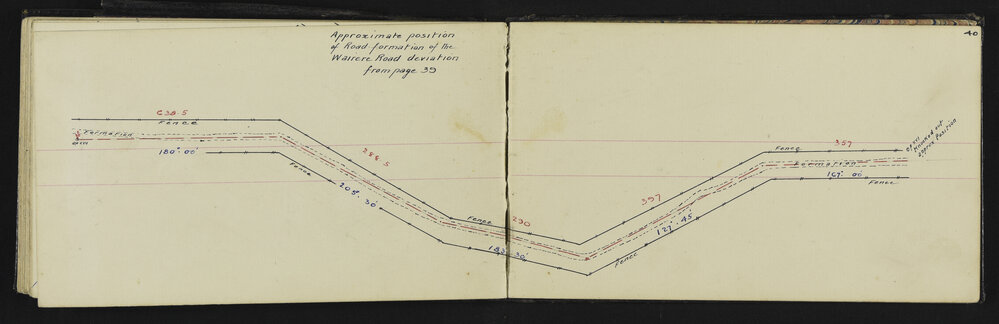 40
Approximate position
of Road formation of the
Wairere Road deviation
from page 39
C38.5
Fence
Formation
180° 00'
288.5
Fence
208° 30'
Fence
230
183° 30'
397
127° 45'
Fence
Fence
357
Formation
167° 00'
Fence
Approx Position